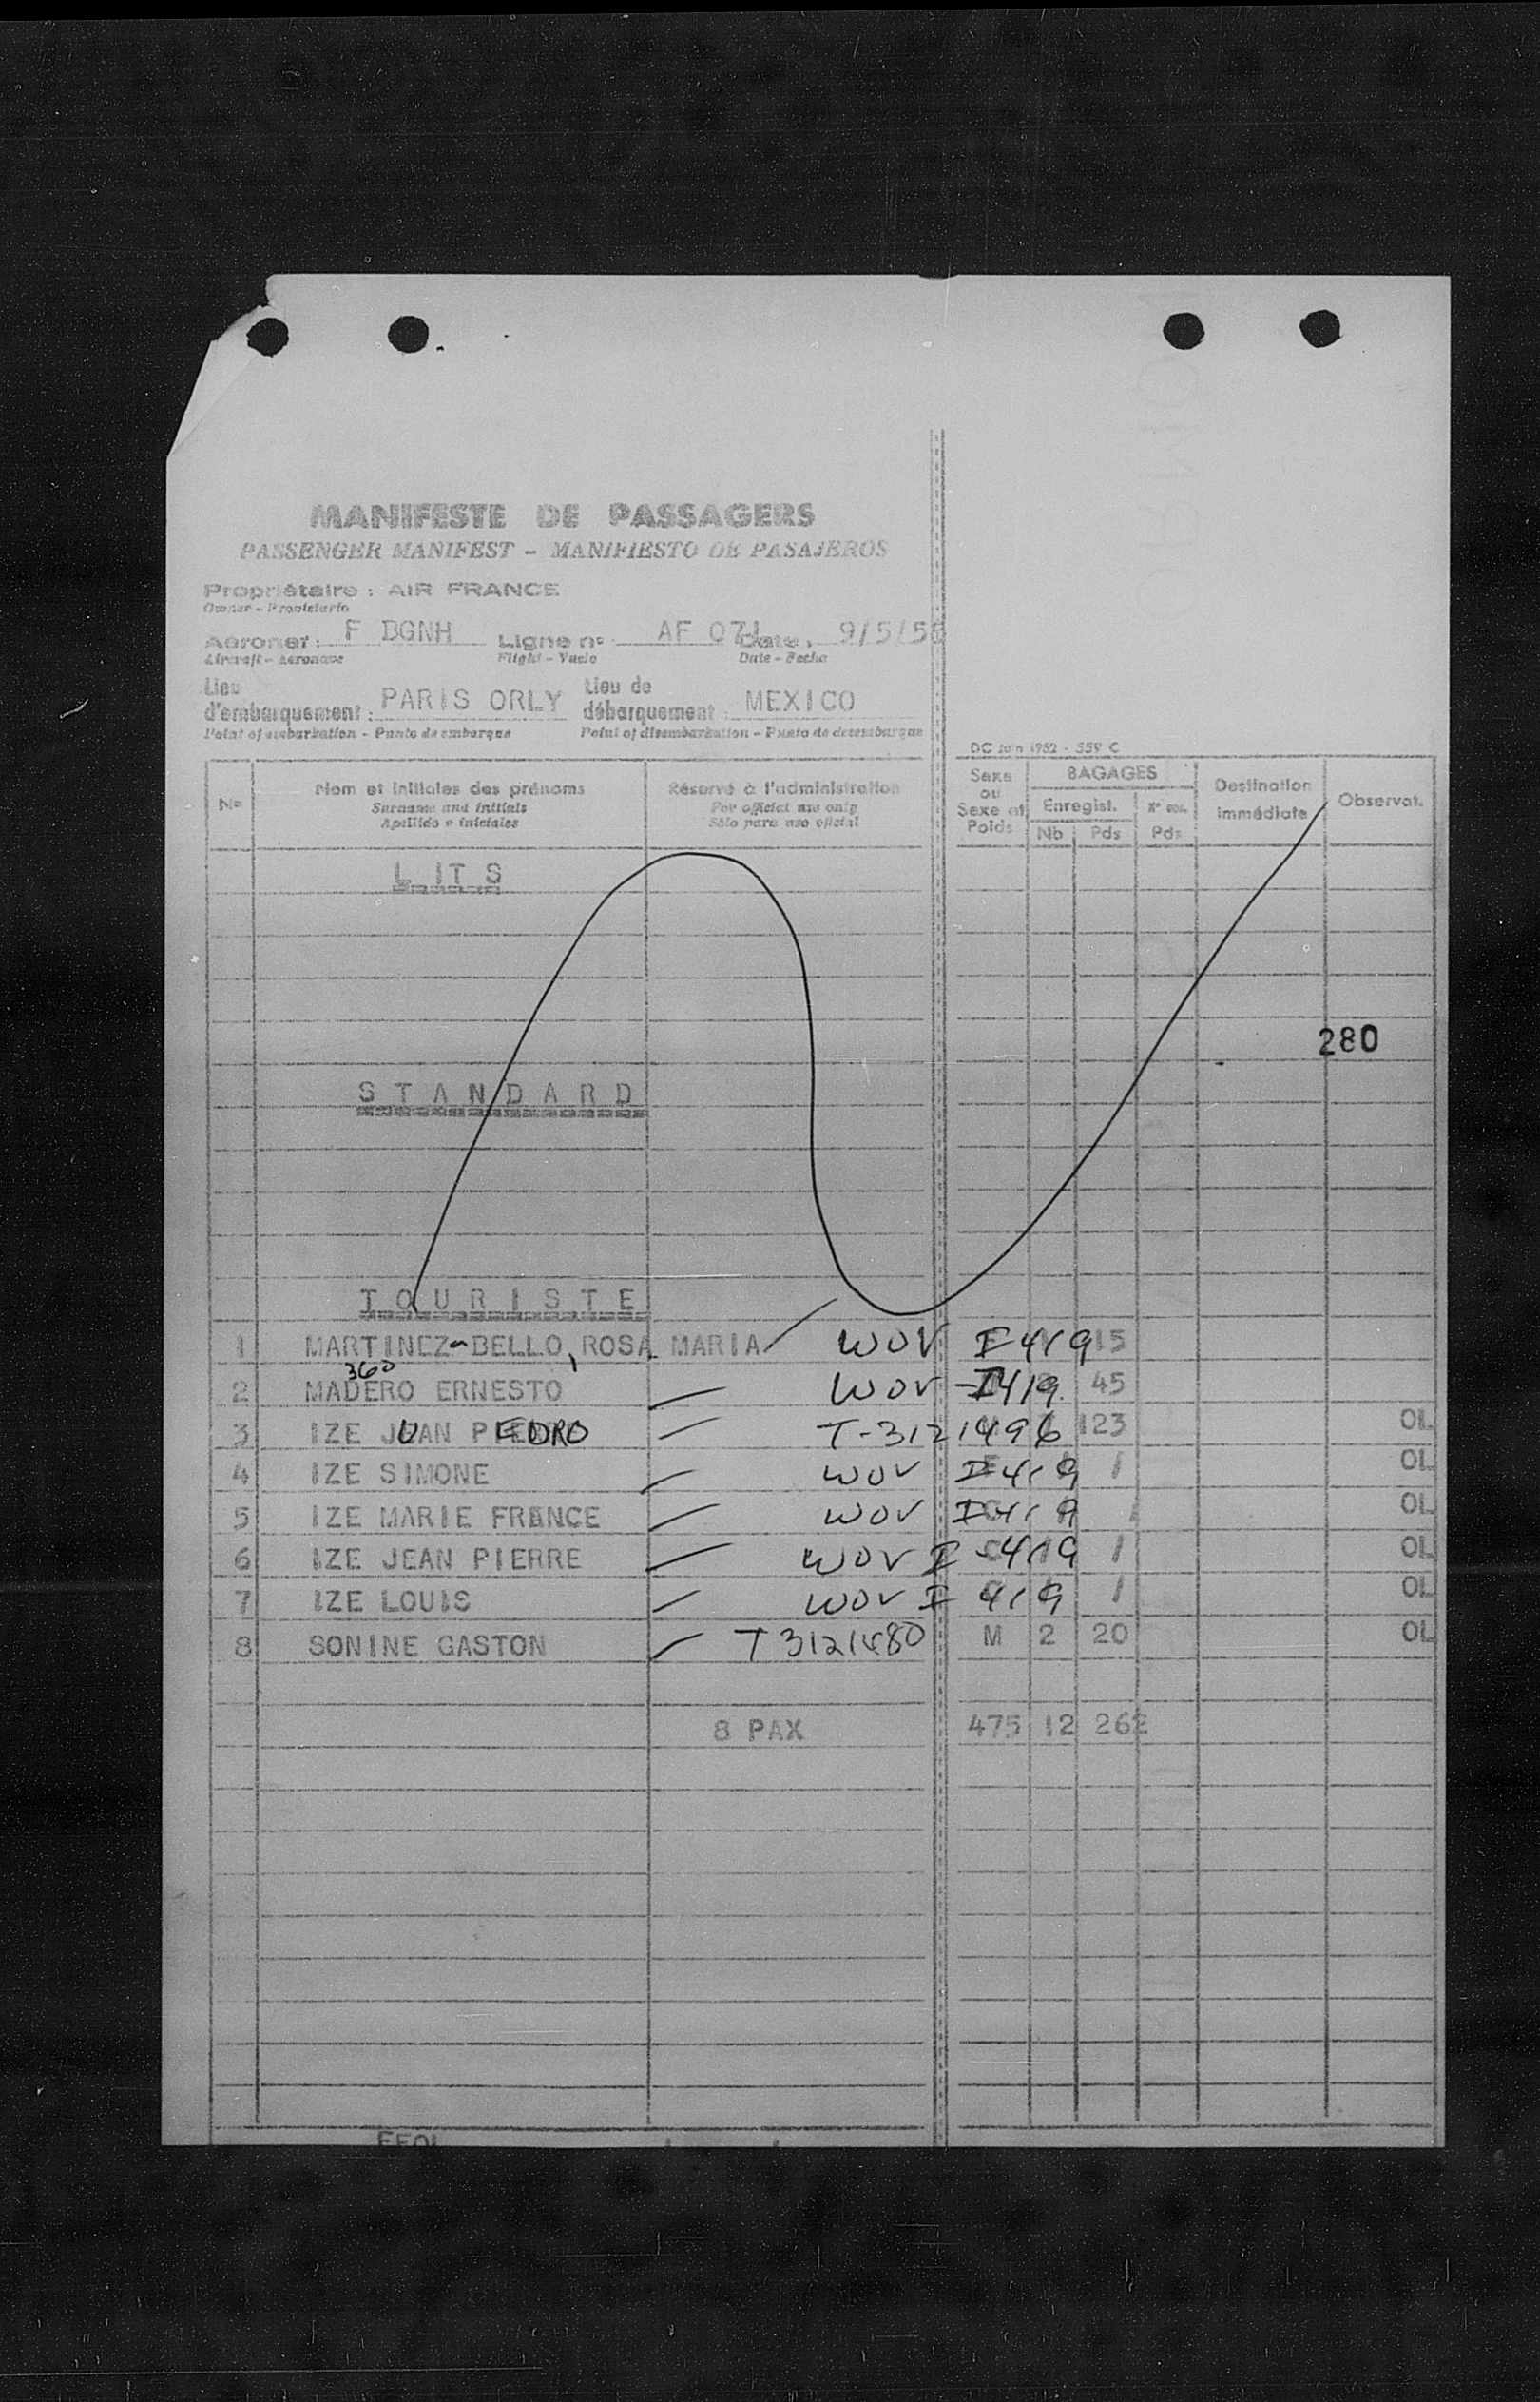 MANIFESTE DE PASSAGERS
PASSENGER MANIFEST - MANIFIESTO DE PASAJEROS
Propriétaire : AIR FRANCE
Owner - Propietario
Aéronef : F BGNH Ligne n° AF 071 Date : 9/5/56
Aircraft - Aeronave Flight - Vuelo Date - Fecha
Lieu d'embarquement : PARIS ORLY Lieu de débarquement : MEXICO
Point of embarkation - Punto de embarque Point of disembarkation - Punto de desembarque
DC Juin 1952 - 559 C
N° Nom et initiales des prénoms Réservé à l'administration Sexe ou Sexe et Poids BAGAGES Destination immédiate Observat.
Surname and initials For official use only Enregist.
Apellido e iniciales Sólo para uso oficial Nb Pds Pds
LITS
280
STANDARD
TOURISTE
1 MARTINEZ-BELLO, ROSA MARIA WOV I 419 15
360
2 MADERO ERNESTO WOV I419 45
3 IZE JUAN PEDRO T-3121496 123 OL
4 IZE SIMONE WOV I419 / OL
5 IZE MARIE FRANCE WOV I419 / OL
6 IZE JEAN PIERRE WOV I-419 / OL
7 IZE LOUIS WOV I 419 / OL
8 SONINE GASTON T3121480 M 2 20 OL
8 PAX 475 12 262